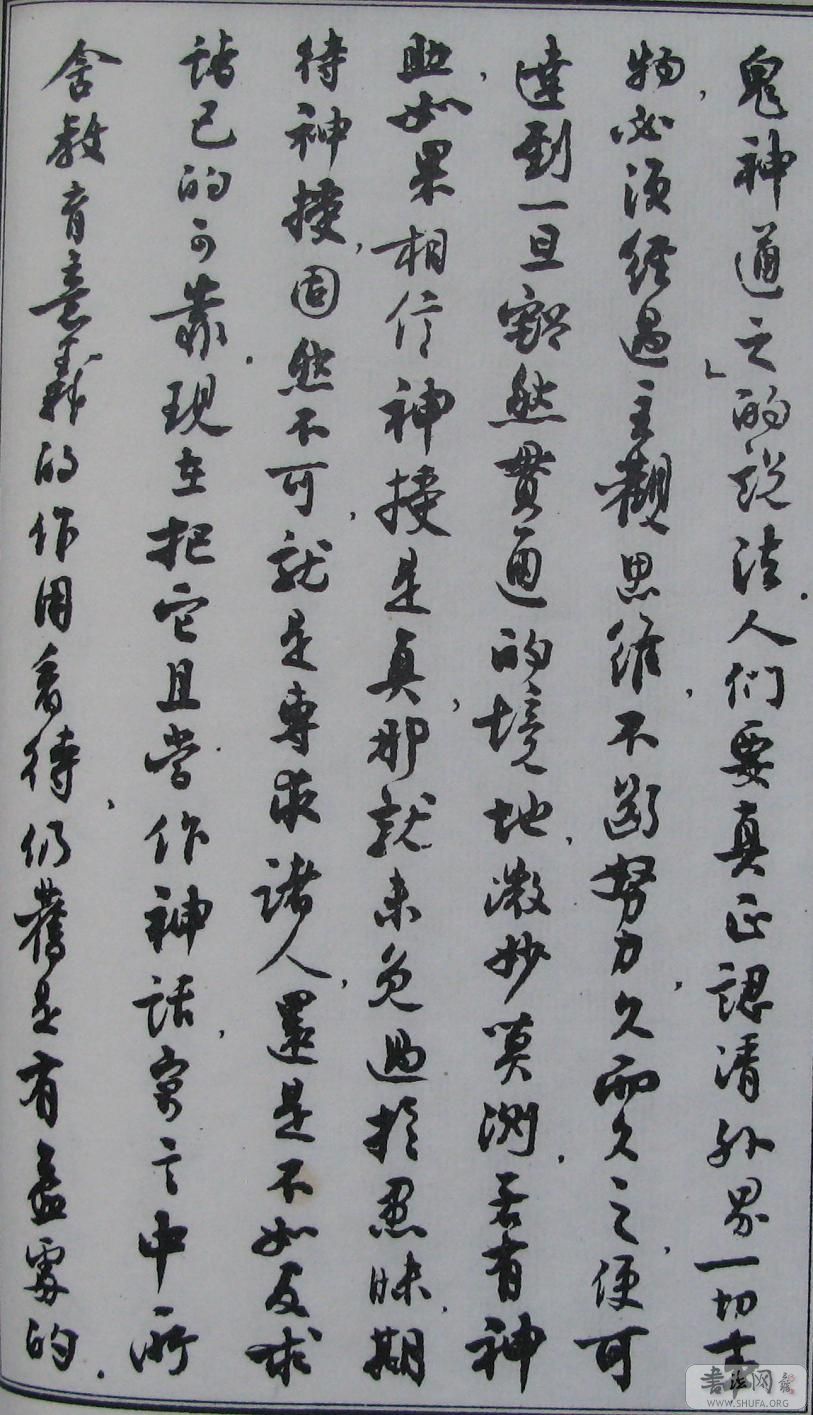 鬼神通之」的說法。人們要真正認清外界一切事
物,必須經過主觀思維,不斷努力,久而久之,便可
達到一旦豁然貫通的境地,微妙莫測,若有神
助,如果相信神授是真,那就未免過於愚昧,期
待神授,固然不可,就是專求諸人,還是不如反求
諸己的可靠。現在把它且當作神話,寓言中所
含教育意義的作用看待,仍舊是有益處的。
書法网
WWW.SHUFA.ORG